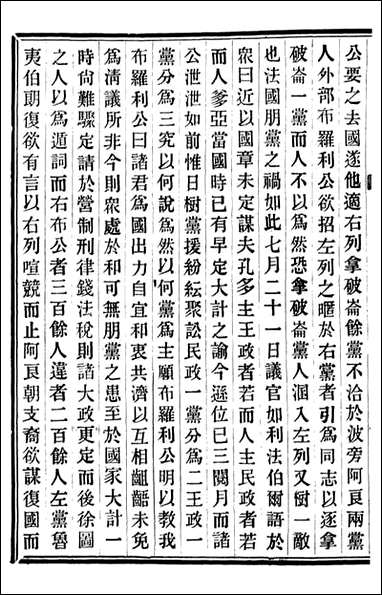 公要之去國遂他適右列拿破崙餘黨不洽於波旁阿瓦兩黨
人外部布羅利公欲招左列之暱於右黨者引爲同志以逐拿
破崙一黨而人不以爲然恐拿破崙黨人溷入左列又樹一敵
也法國朋黨之禍如此七月二十一日議官如利法伯爾語於
衆曰近以國章未定謀夫孔多主王政者若而人主民政者若
而人爹亞當國時已有早定大計之諭今遜位已三閱月而諸
公泄泄如前惟日樹黨援紛紜聚訟民政一黨分爲二王政一
黨分爲三究以何說爲然以何黨爲主願布羅利公明以教我
布羅利公曰諸君爲國出力自宜和衷共濟以互相齟齬未免
爲淸議所非今則衆處於和可無朋黨之患至於國家大計一
時尙難驟定請於營制刑律錢法稅則諸大政更定而後徐圖
之人以爲遁詞而右布公者三百餘人違者二百餘人左黨魯
夷伯朗復欲有言以右列喧競而止阿瓦朝支裔欲謀復國而